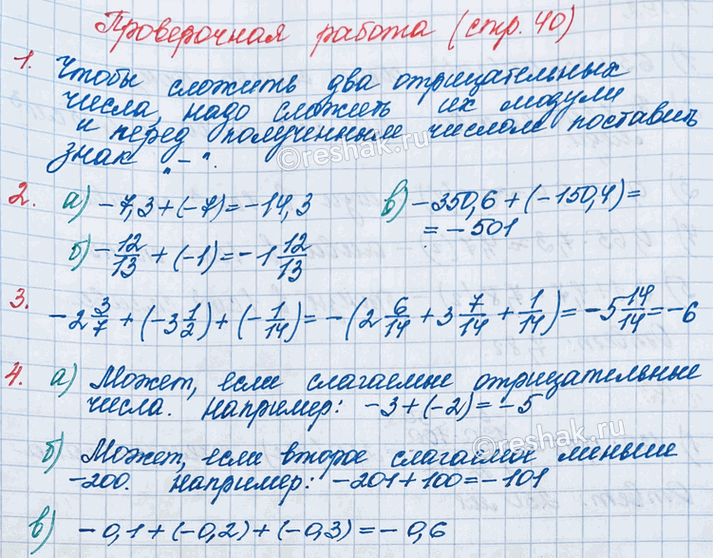 Проверочная работа (стр. 40)
1. Чтобы сложить два отрицательных
числа, надо сложить их модули
и перед полученным числом поставить
знак „–“.
©reshak.ru
2. а) –7,3+(–7)=–14,3 в) –350,6+(–150,4)=
=–501
б) –12/13+(–1)=–1 12/13
3. –2 3/7+(–3 1/2)+(–1/14)=–(2 6/14+3 7/14+1/14)=–5 14/14=–6
4. а) Может, если слагаемые отрицательные
числа. Например: –3+(–2)=–5
©reshak.ru
б) Может, если второе слагаемое меньше
–200. Например: –201+100=–101
в) –0,1+(–0,2)+(–0,3)=–0,6